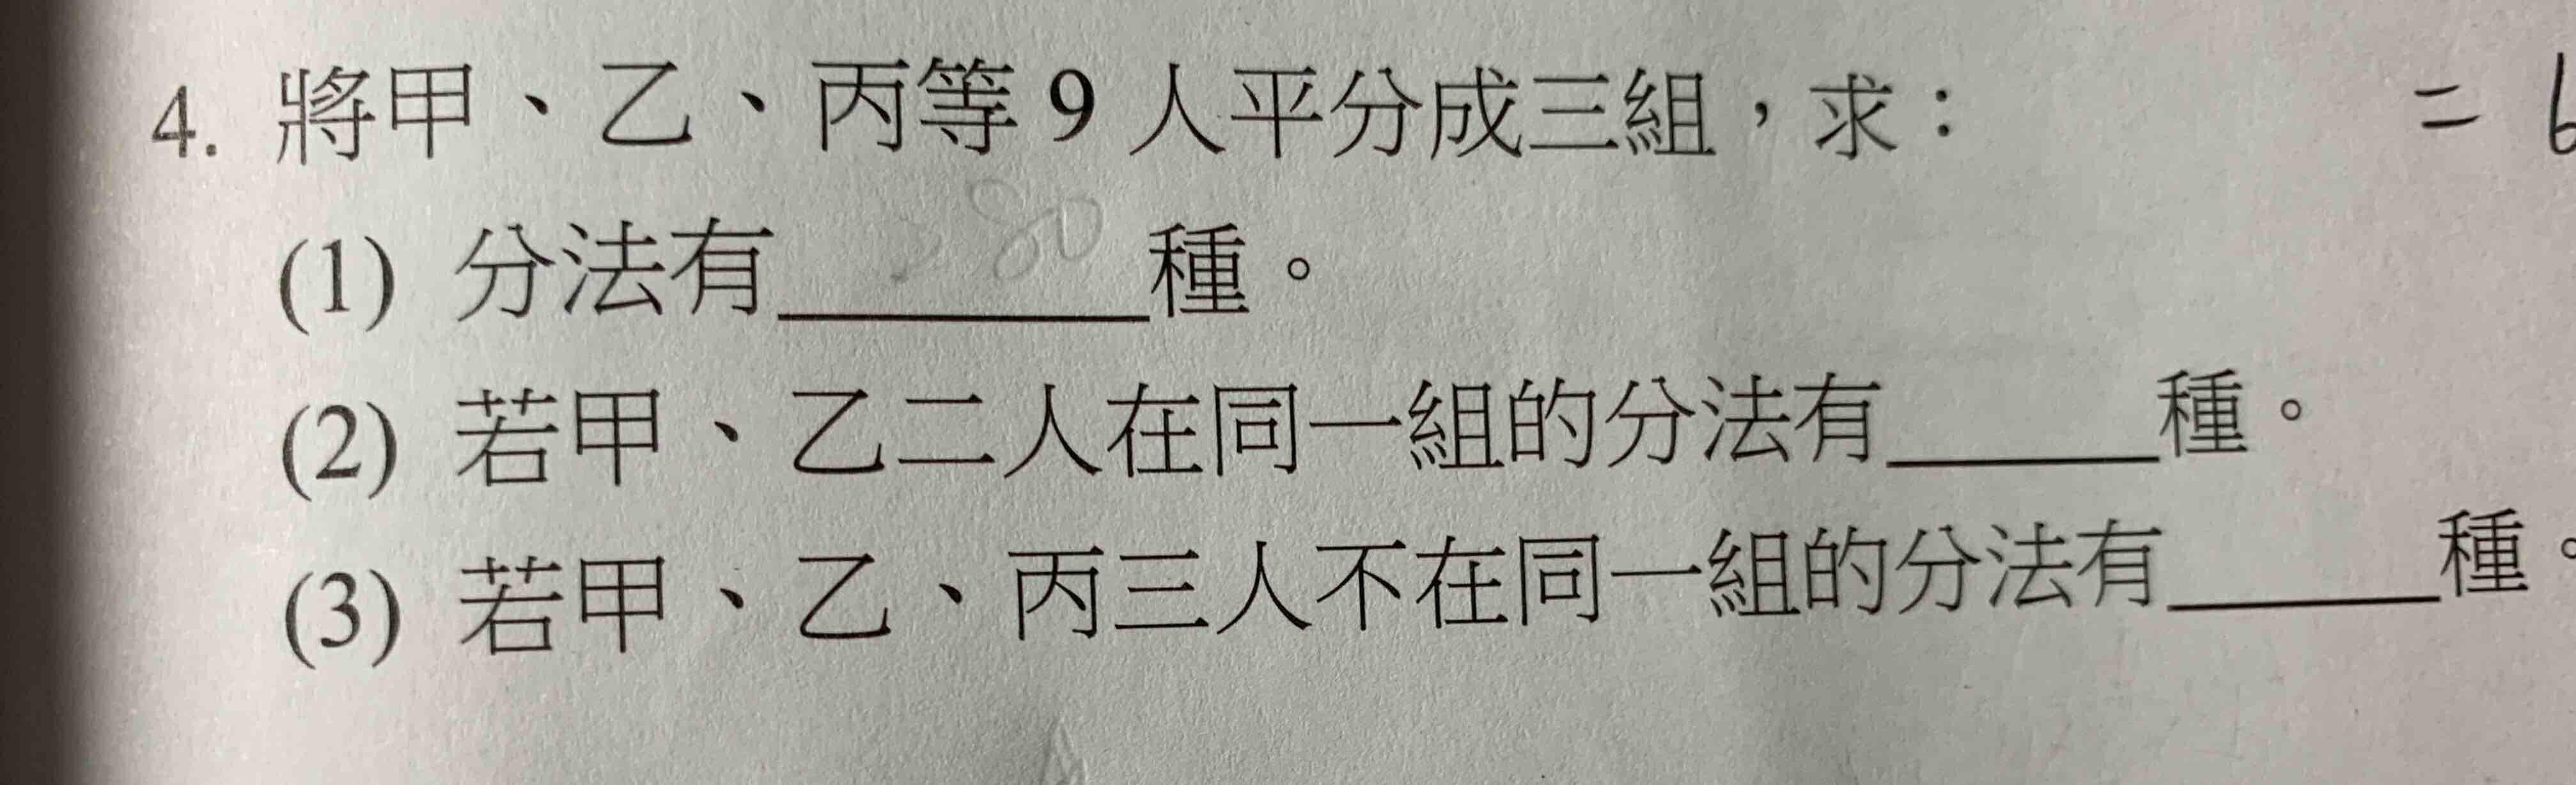 4. 將甲、乙、丙等 9 人平分成三組,求:
(1) 分法有 280 種。
(2) 若甲、乙二人在同一組的分法有______種。
(3) 若甲、乙、丙三人不在同一組的分法有______種。